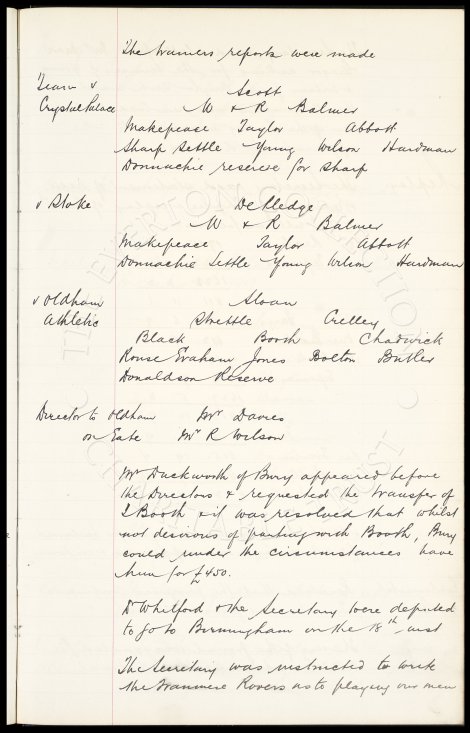 The trainers reports were made
Team v
Crystal Palace
Scott
W & R Balmer
Makepeace Taylor Abbott
Sharp Settle Young Wilson Hardman
Donnachie reserve for Sharp
v Stoke
De Pledge
W & R Balmer
Makepeace Taylor Abbott
Donnachie Settle Young Wilson Hardman
v Oldham
Athletic
Sloan
Strettle Crelley
Black Booth Chadwick
Rouse Graham Jones Bolton Butler
Donaldson Reserve
Director to Oldham Mr Davies
on Gate Mr R Wilson
Mr Duckworth of Bury appeared before
the Directors & requested the transfer of
Booth & it was resolved that whilst
not desirous of parting with Booth, Bury
could under the circumstances have
him for £450.
Dr Whitford & the Secretary were deputed
to go to Birmingham on the 18th inst
The Secretary was instructed to write
the Tranmere Rovers as to playing our men